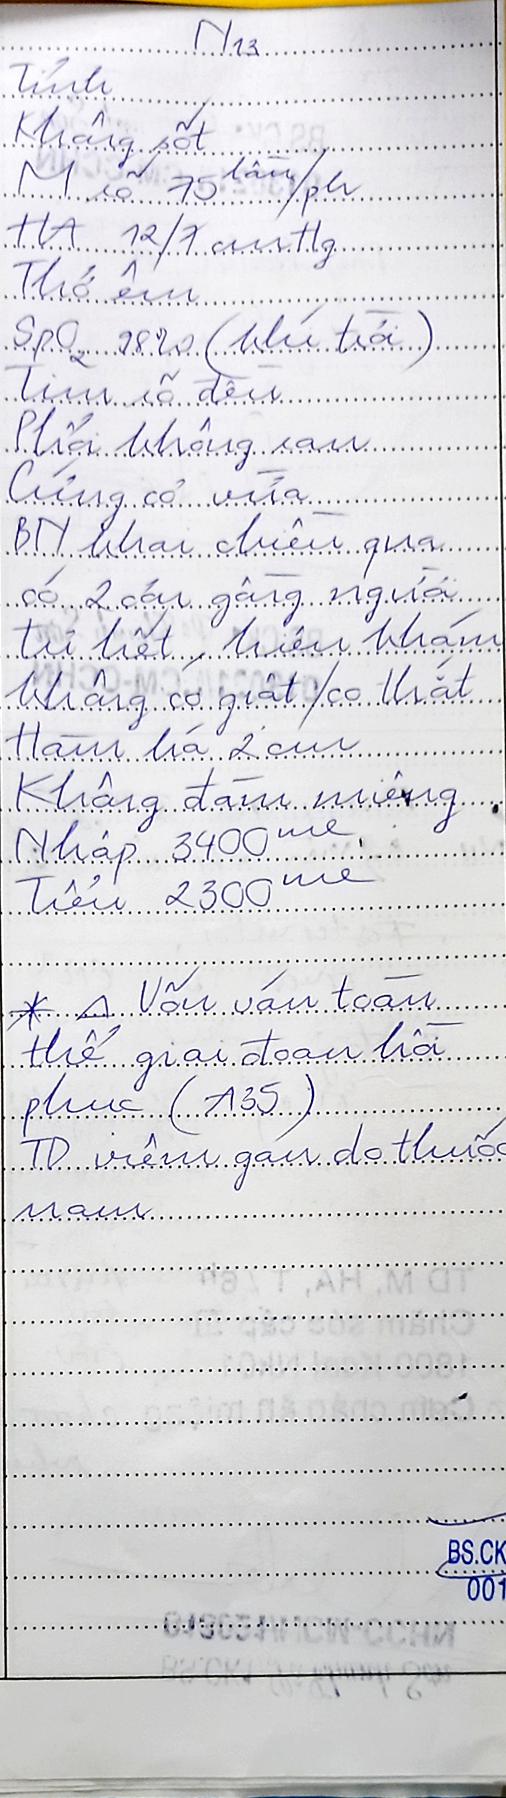 N13
Tỉnh
Không sốt
M rõ 75 lần/ph
HA 12/7 cmHg
Thở êm
SpO2 98% (khí trời)
Tim rõ đều
Phổi không ran
Cứng cơ vừa
BN khai chiều qua
có 2 cơn gồng người
tự hết, hiện khám
không co giật/co thắt
Hàm há 2 cm
Không đàm miệng
Nhập 3400 ml
Tiểu 2300 ml
* Δ Uốn ván toàn
thể giai đoạn hồi
phục (A35)
TD viêm gan do thuốc
nam
TD M, HA, T / 6h
Chăm sóc cấp II
1800 Kcal NK01
Cơm chăn ăn miệng
BS.CK
001